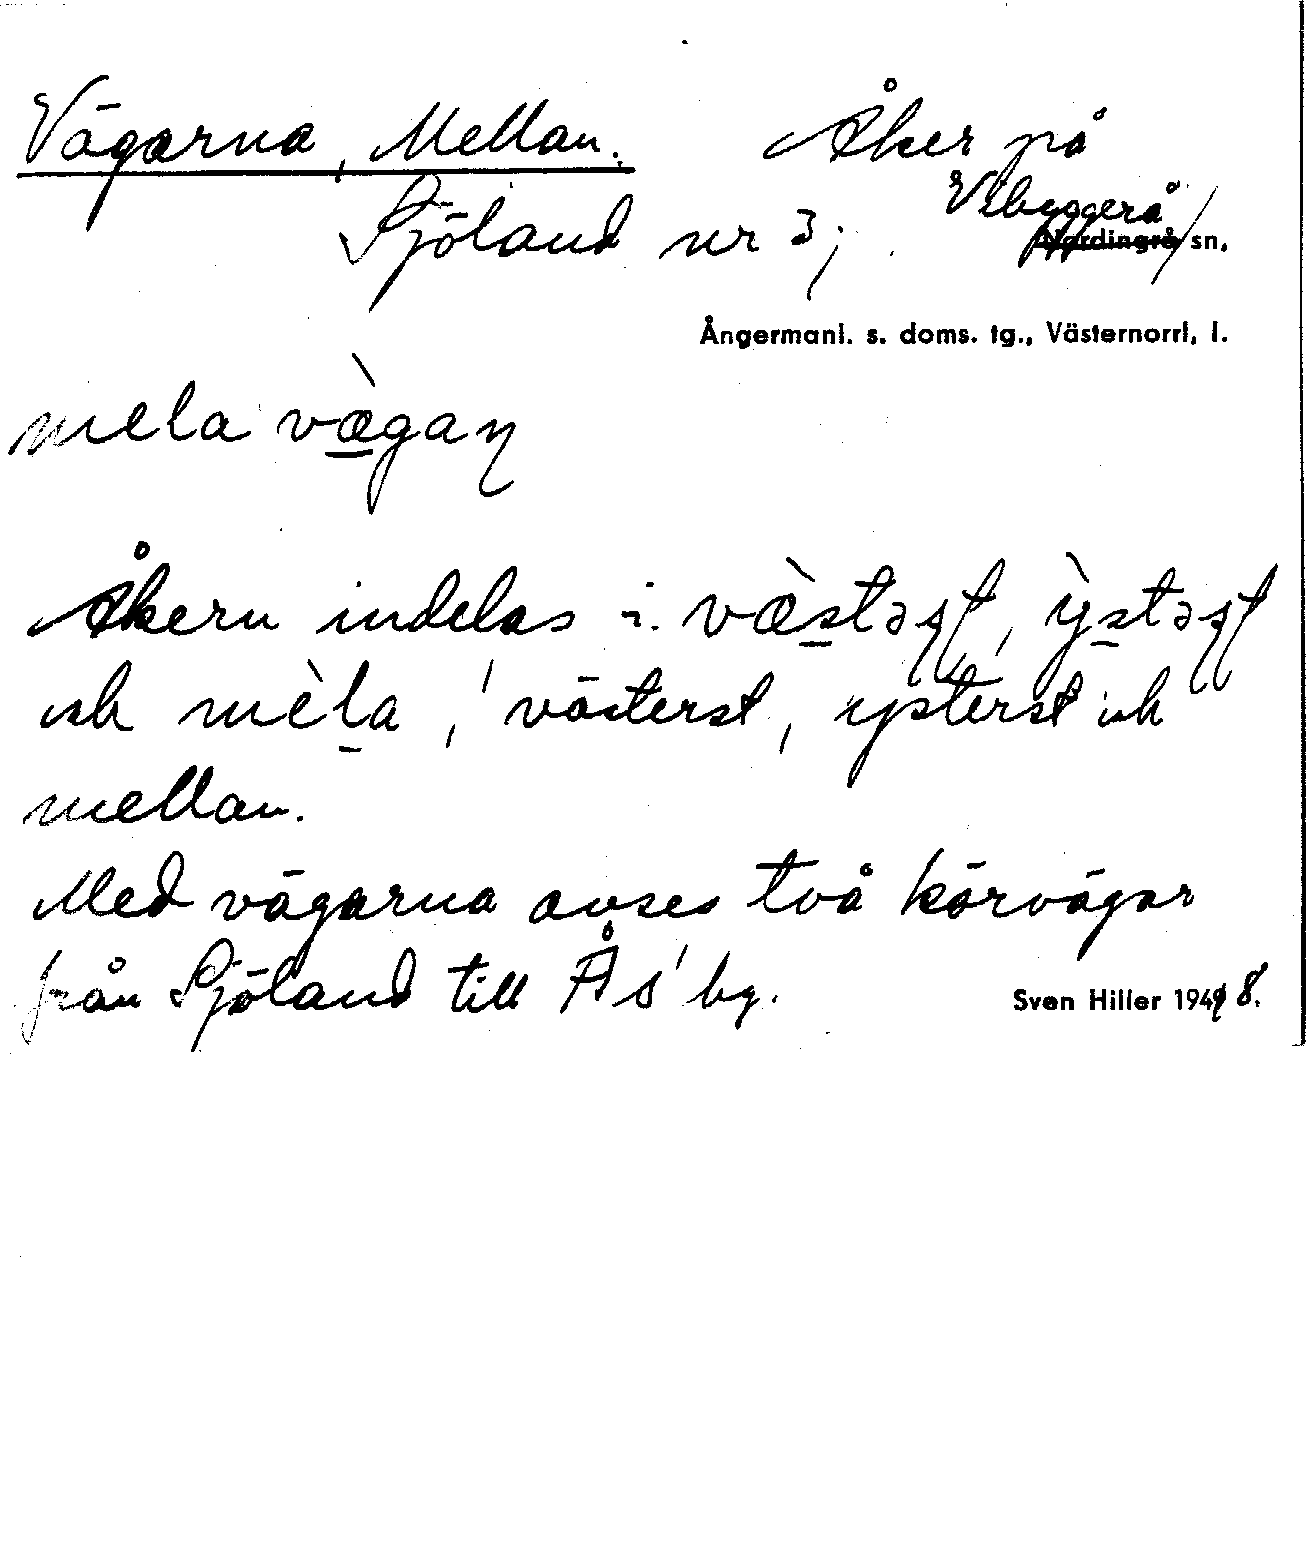 Vägarna, Mellan. Åker på
Sjöland nr 3; Vibyggerå
Nordingrå sn,
Ångermanl. s. doms. tg., Västernorrl, l.
mela vægaɳ
Åkern indelas i. væ̀stəʂt, ỳstəʂt
och mèla, ' västerst, ysterst och
mellan.
Med vägarna avses två körvägar
från Sjöland till Ås' by.
Sven Hiller 1948.